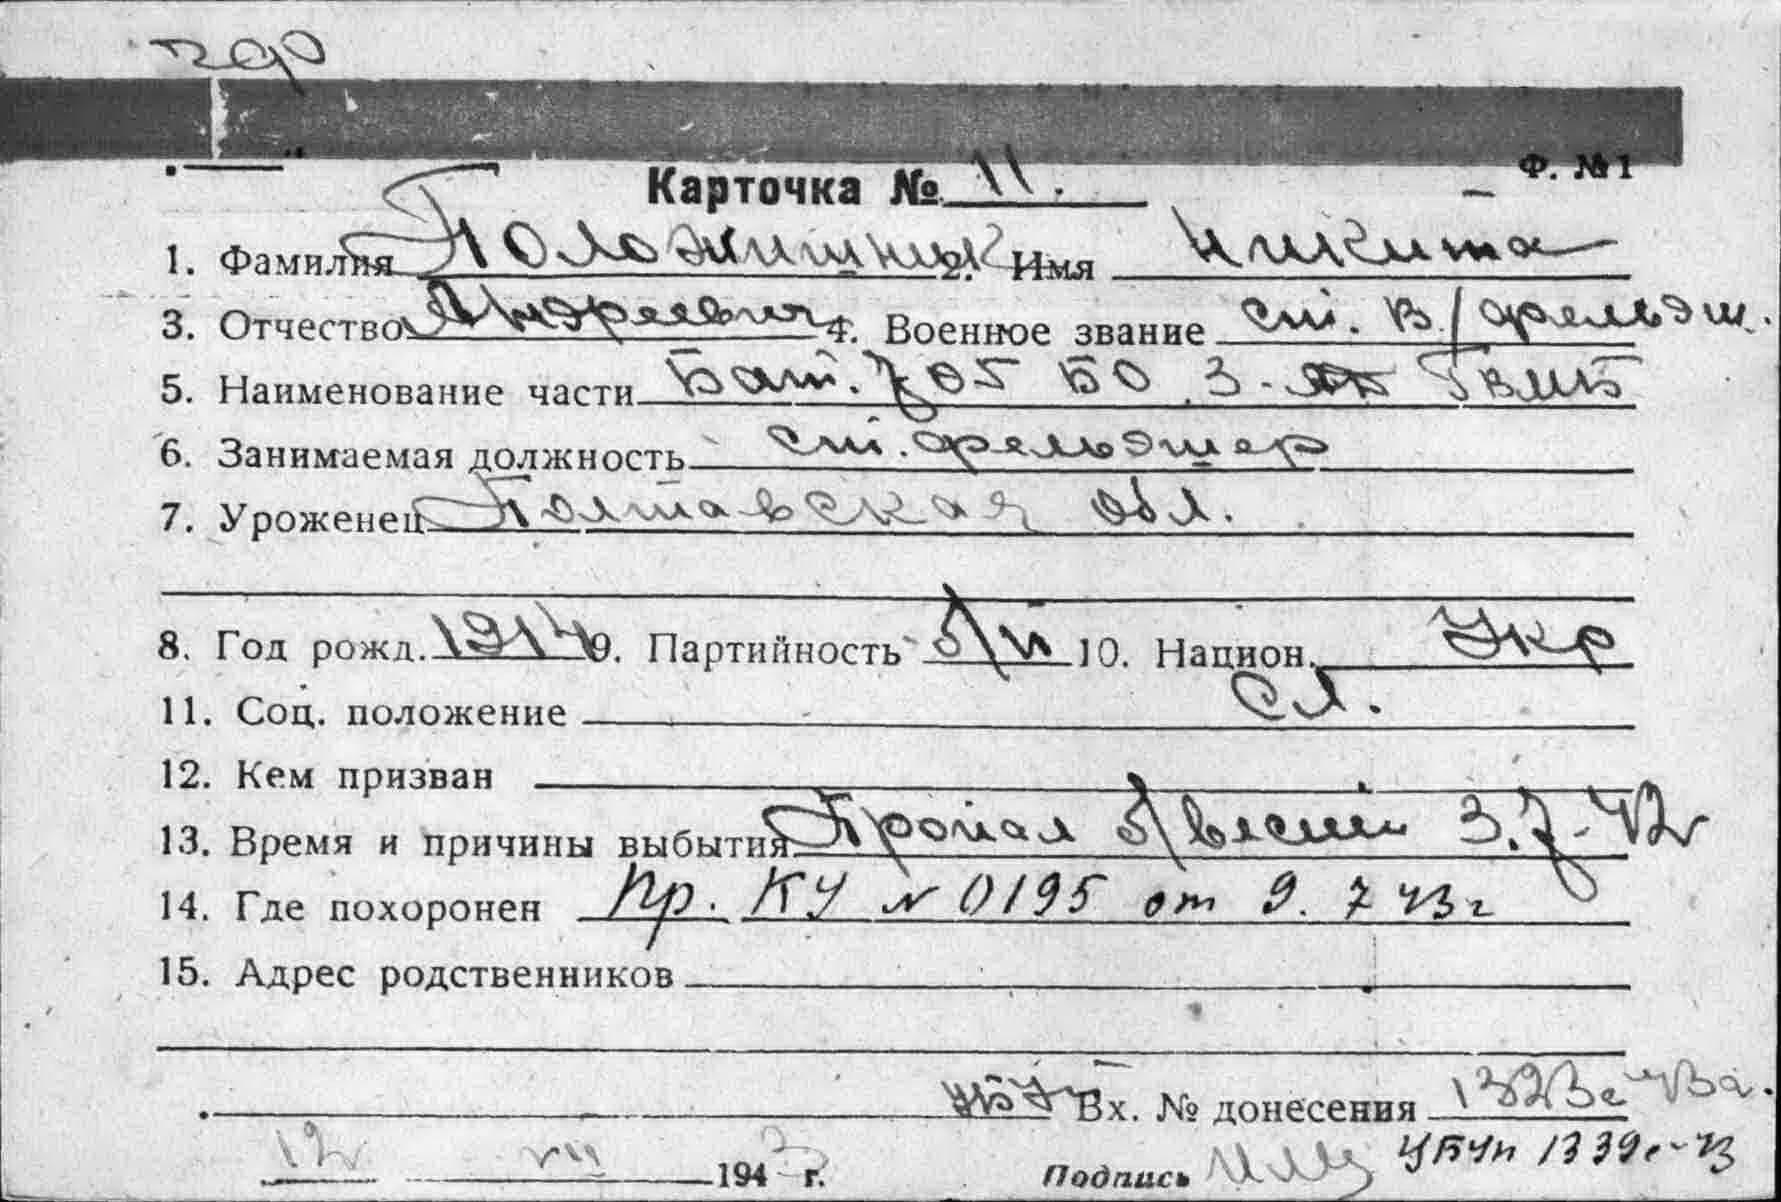 Ф. №1
Карточка № 11.
1. Фамилия Положишник 2. Имя Никита
3. Отчество Андреевич 4. Военное звание ст. в/фельдш.
5. Наименование части Бат. 705 БО 3- ГвМБ
6. Занимаемая должность ст. фельдшер
7. Уроженец Полтавская обл.
8. Год рожд. 1914 9. Партийность б/п 10. Национ. Укр
11. Соц. положение сл.
12. Кем призван
13. Время и причины выбытия Пропал б/вести 3.7-42г
14. Где похоронен Пр. КУ № 0195 от 9. 7 43г
15. Адрес родственников
Вх. № донесения
12 VII 1943 г. Подпись